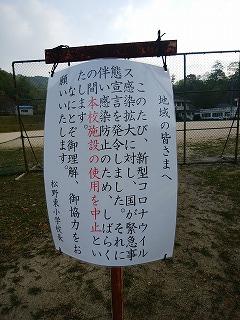 地域の皆さまへ
このたび、新型コロナウイル
ス感染拡大に対し、国が緊急事
態宣言を発令しました。それに
伴い感染防止のため、しばらく
の間本校施設の使用を中止とい
たします。
なにとぞ御理解、御協力をお
願いいたします。
松野東小学校長